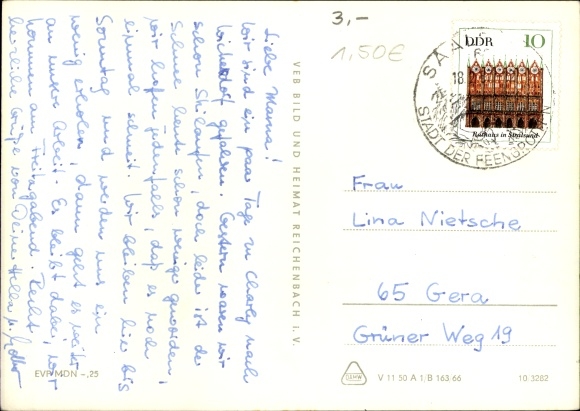 Liebe Mama!
Wir sind ein paar Tage zu Charly nach
gefahren. Gestern waren wir
schon Skilaufen, doch leider ist der
Schnee heute schon weniger geworden,
wir hoffen jedenfalls, daß es noch
einmal schneit. Wir bleiben hier bis
Sonntag und werden uns ein
wenig erholen, dann geht es weiter
an unsere Arbeit. Es bleibt dabei, wir
kommen am Freitagabend. Recht
herzliche Grüße von Deiner
EVP MDN -,25
VEB BILD UND HEIMAT REICHENBACH I. V.
3,-
1,50€
DDR 10
Rathaus in Stralsund
SAA
18.
STADT DER FEENGROTTEN
Frau
Lina Nietsche
65 Gera
Grüner Weg 19
V 11 50 A 1/B 163 66
10 3282